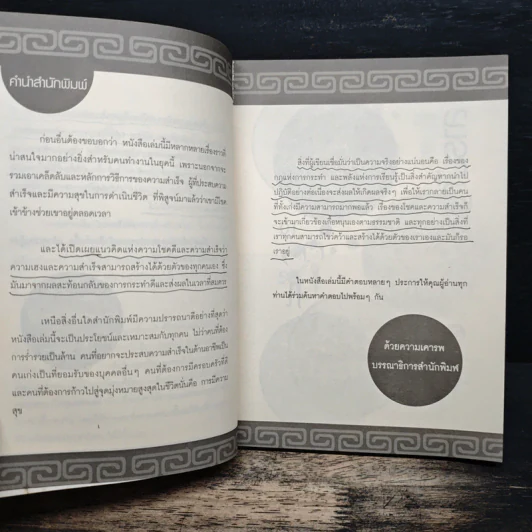 คำนำสำนักพิมพ์
ก่อนอื่นต้องขอบอกว่า หนังสือเล่มนี้มีหลากหลายเรื่องราวที่
น่าสนใจมากอย่างยิ่งสำหรับคนทำงานในยุคนี้ เพราะนอกจากจะ
รวมเอาเคล็ดลับและหลักการวิธีการของความสำเร็จ ผู้ที่ประสบความ
สำเร็จและมีความสุขในการดำเนินชีวิต ที่พิสูจน์มาแล้วว่าเขามีโชค
เข้าข้างช่วยเขาอยู่ตลอดเวลา
และได้เปิดเผยแนวคิดแห่งความโชคดีและความสำเร็จว่า
ความเฮงและความสำเร็จสามารถสร้างได้ด้วยตัวของทุกคนเอง ซึ่ง
มันมาจากผลสะท้อนกลับของการกระทำดีและส่งผลในเวลาที่สมควร
เหนือสิ่งอื่นใดสำนักพิมพ์มีความปรารถนาดีอย่างที่สุดว่า
หนังสือเล่มนี้จะเป็นประโยชน์และเหมาะสมกับทุกคน ไม่ว่าคนที่ต้อง
การร่ำรวยเป็นล้าน คนที่อยากจะประสบความสำเร็จในด้านอาชีพเป็น
คนเก่งเป็นที่ยอมรับของบุคคลอื่นๆ คนที่ต้องการมีครอบครัวที่ดี
และคนที่ต้องการก้าวไปสู่จุดมุ่งหมายสูงสุดในชีวิตนั่นคือ การมีความ
สุข
สิ่งที่ผู้เขียนเชื่อมั่นว่าเป็นความจริงอย่างแน่นอนคือ เรื่องของ
กฎแห่งการกระทำ และพลังแห่งการเรียนรู้เป็นสิ่งสำคัญหากนำไป
ปฏิบัติอย่างต่อเนื่องจะส่งผลให้เกิดผลจริงๆ เพื่อให้เรากลายเป็นคน
ที่ทั้งเก่งมีความสามารถมากพอแล้ว เรื่องของโชคและความสำเร็จก็
จะเข้ามาเกี่ยวข้องเกื้อหนุนเองตามธรรมชาติ และทุกอย่างเป็นสิ่งที่
เราทุกคนสามารถไขว่คว้าและสร้างได้ด้วยตัวของเราเองและมันก็รอ
เราอยู่
ในหนังสือเล่มนี้มีคำตอบหลายๆ ประการให้คุณผู้อ่านทุก
ท่านได้ร่วมค้นหาคำตอบไปพร้อมๆ กัน
ด้วยความเคารพ
บรรณาธิการสำนักพิมพ์